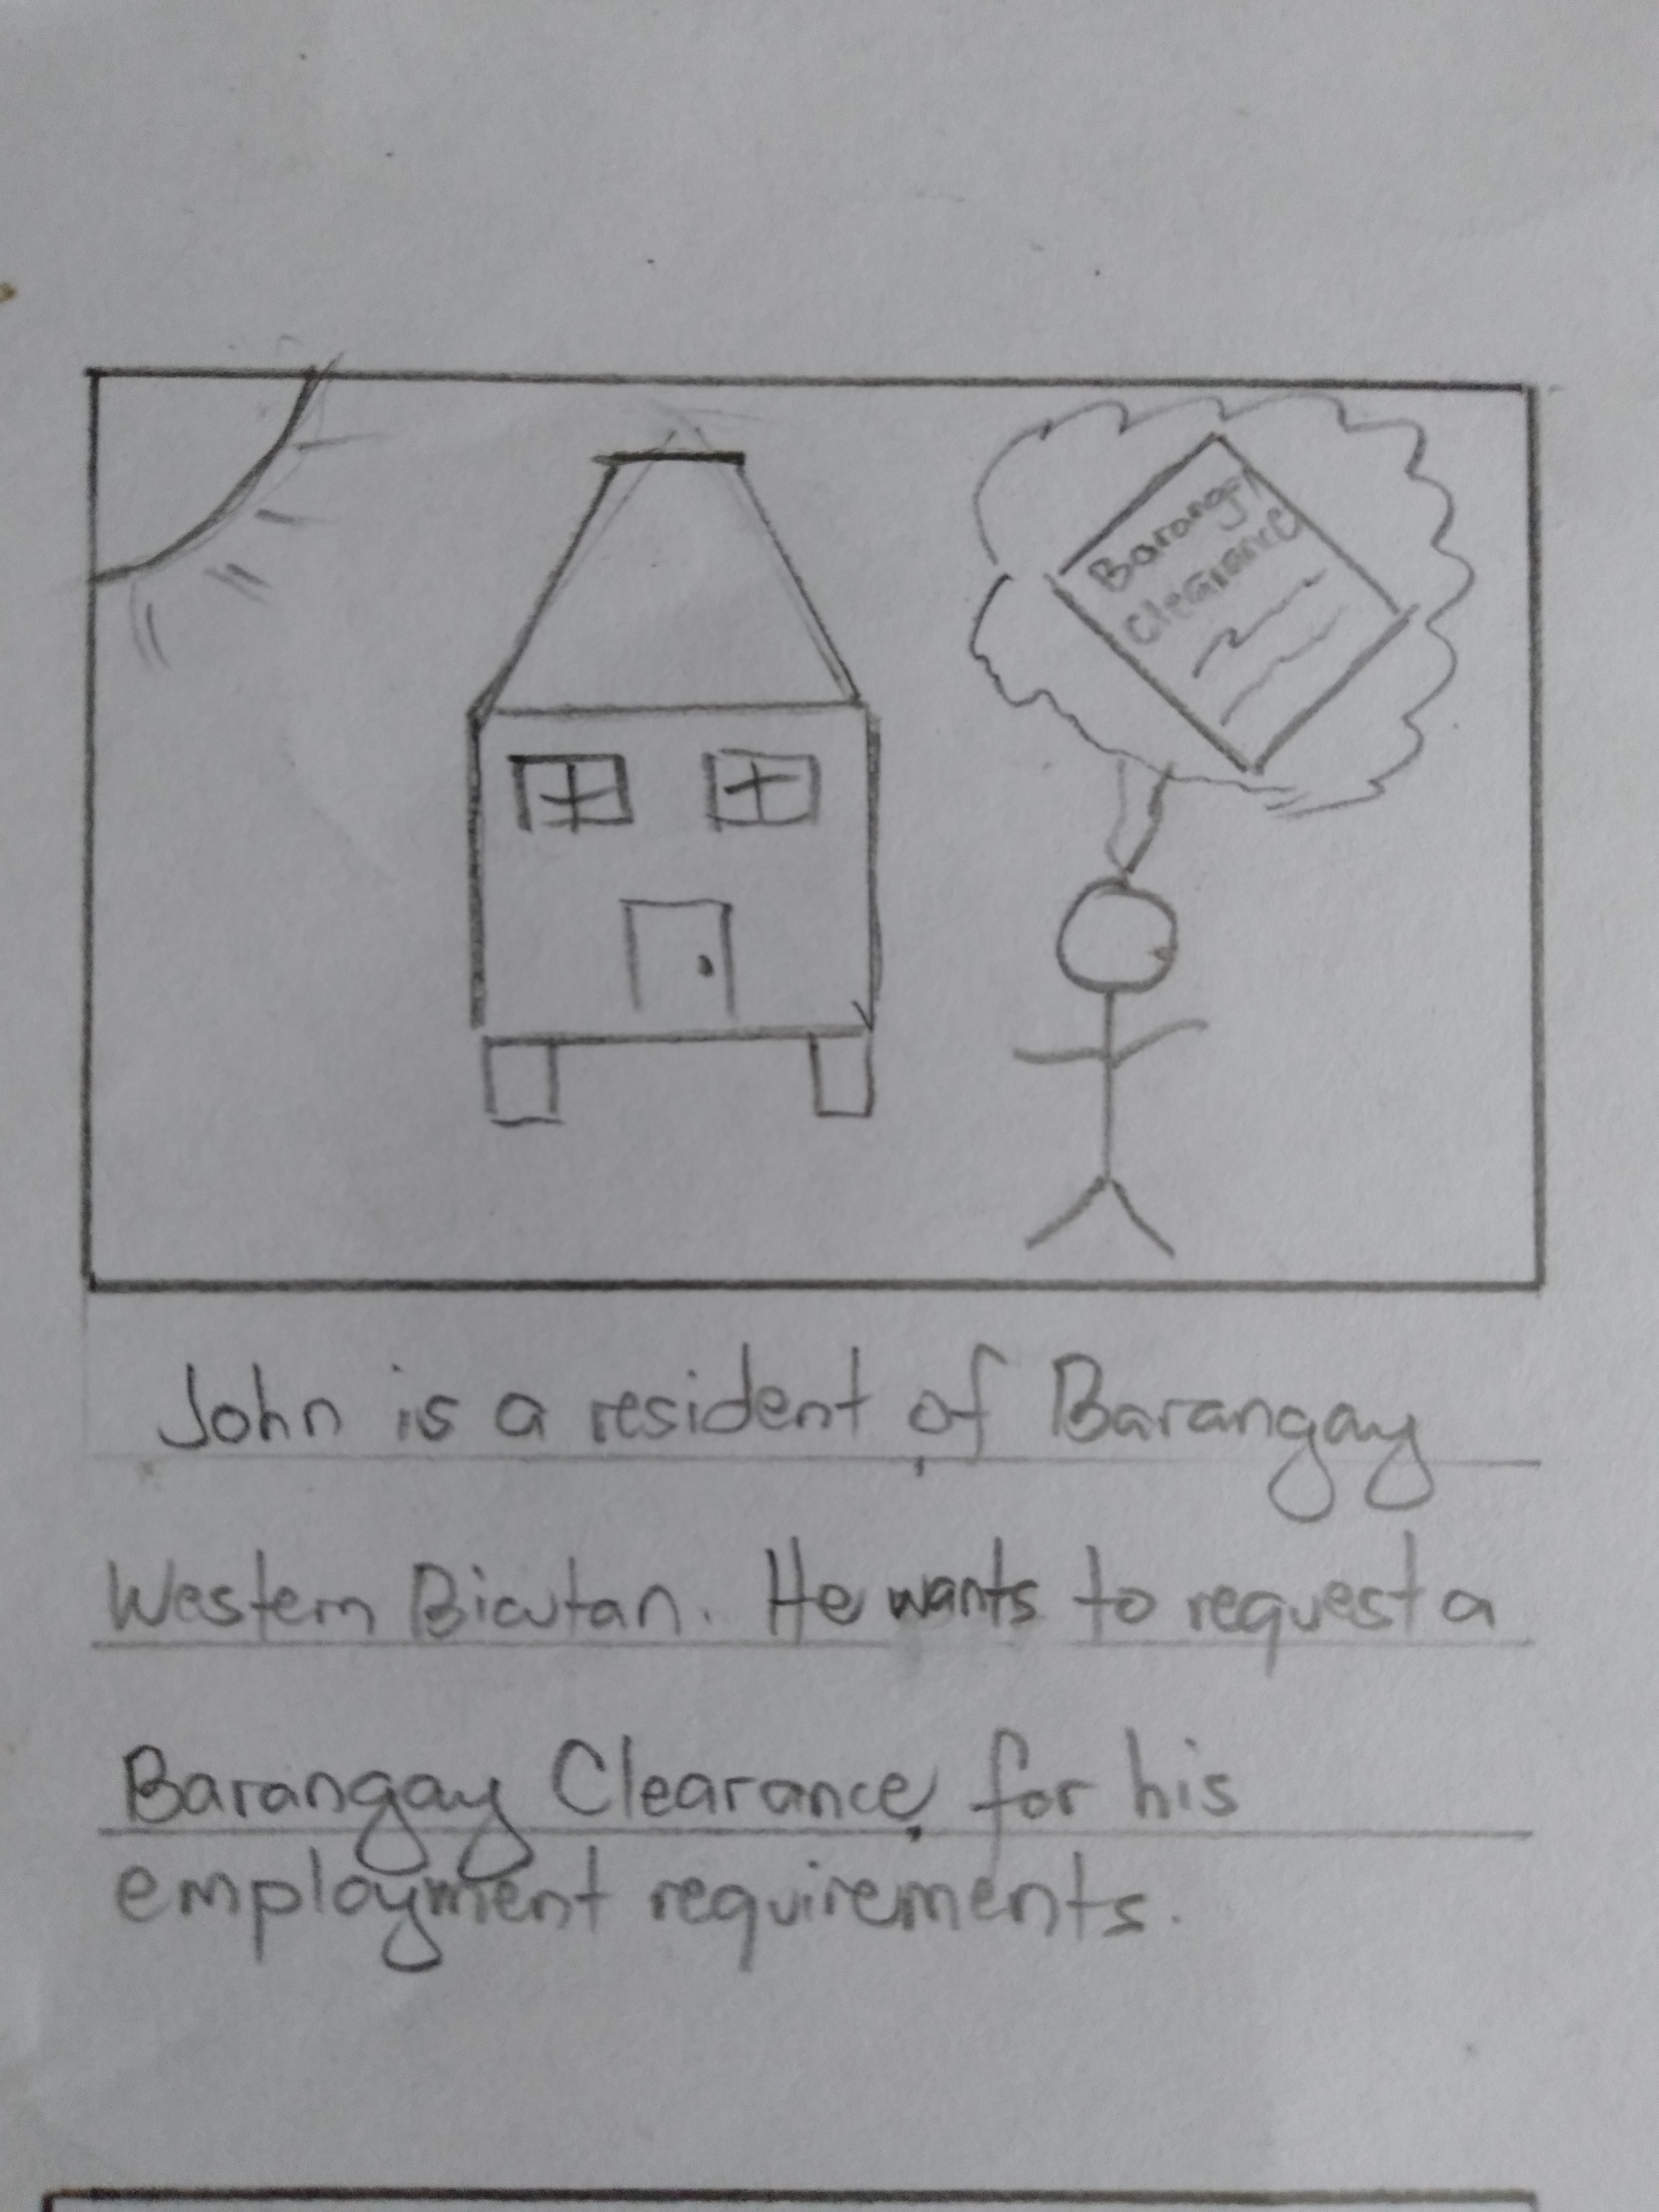 Barangy
Clearance
John is a resident of Barangay
Western Bicutan. He wants to request a
Barangay Clearance for his
employment requirements.